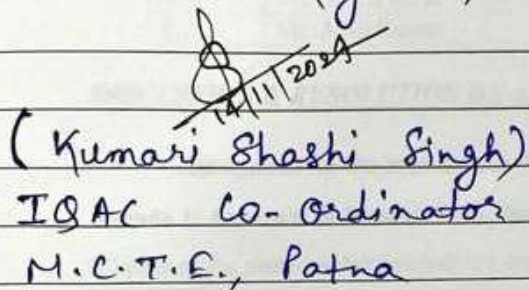 14/11/2024
(Kumari Shashi Singh)
IQAC Co-ordinator
M.C.T.E., Patna